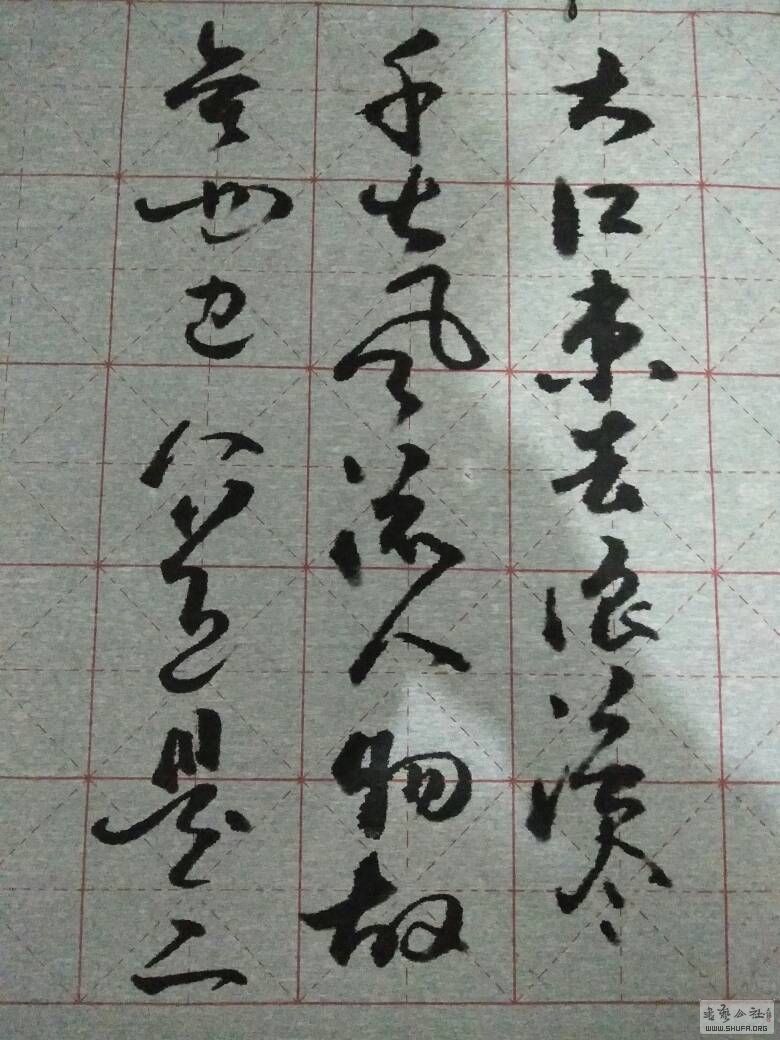 大江東去浪淘盡
千古風流人物故
壘西邊人道是三
書藝公社
WWW.SHUFA.ORG